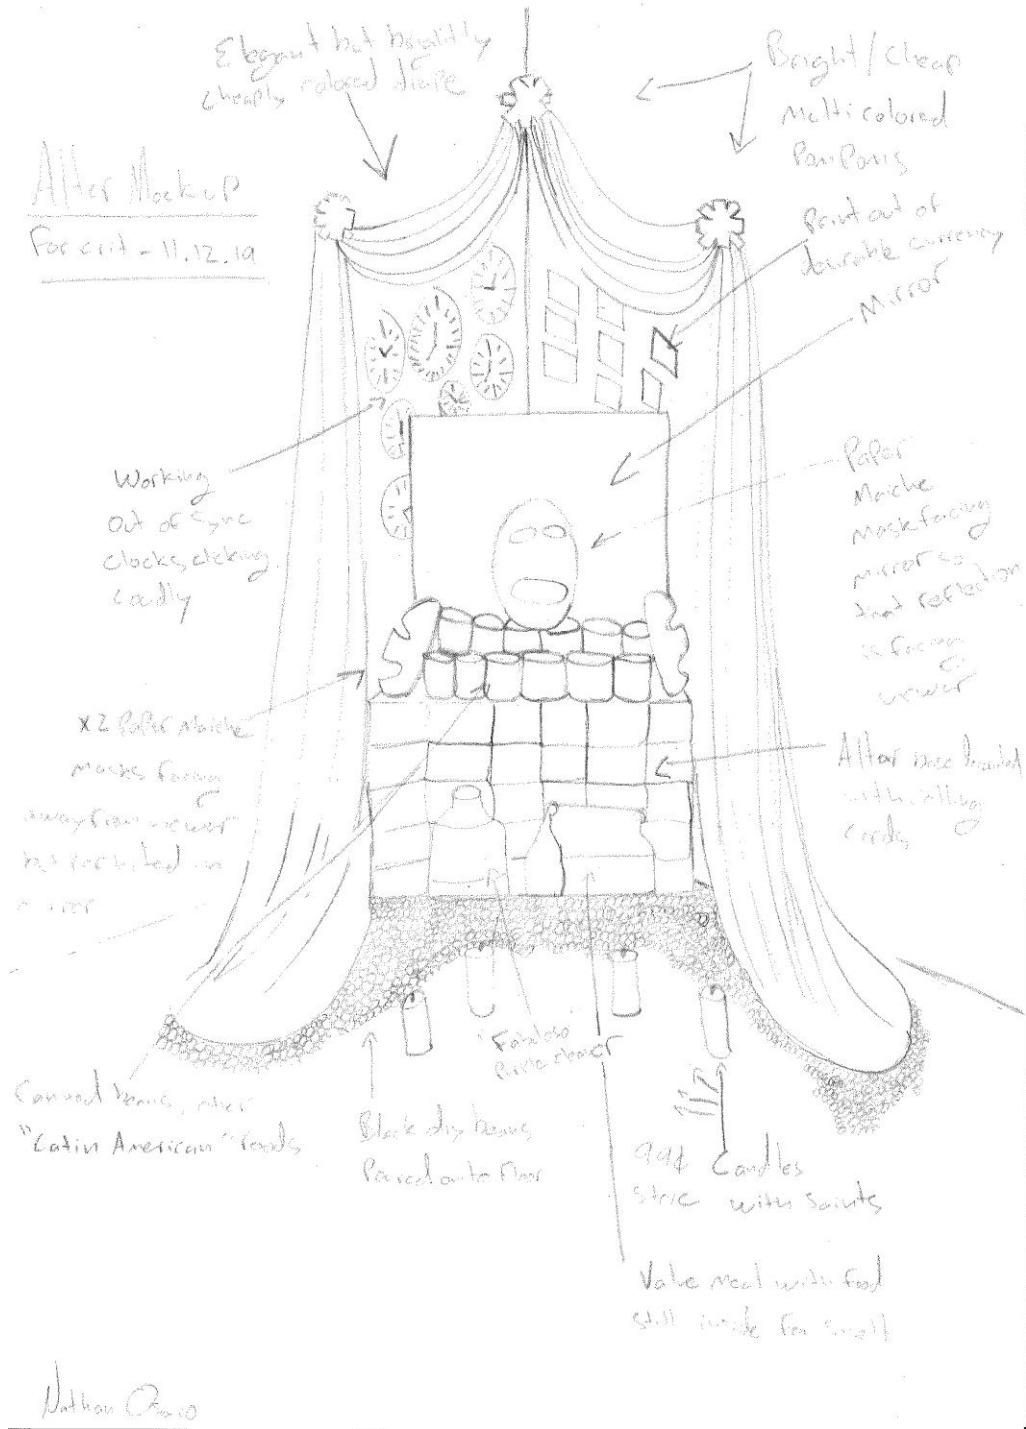 Elegant but
cheaply colored drape
Bright/Cheap
Multicolored
PomPoms
Alter Mockup
For crit - 11.12.19
Print out of
currency
Mirror
Working
Out of Sync
Clocks clicking
Loudly
Paper
Maiche
Mask facing
mirror so
that reflection
is facing
viewer
x2 Paper Maiche
Masks facing
away from viewer
but reflected in
mirror
Altar base
with calling
cards
"Fabuloso"
Purple cleaner
Canned beans, other
"Latin American" foods
Black dry beans
Poured onto Floor
99¢ Candles
store with Saints
Value Meal with food
still inside for smell
Nathan